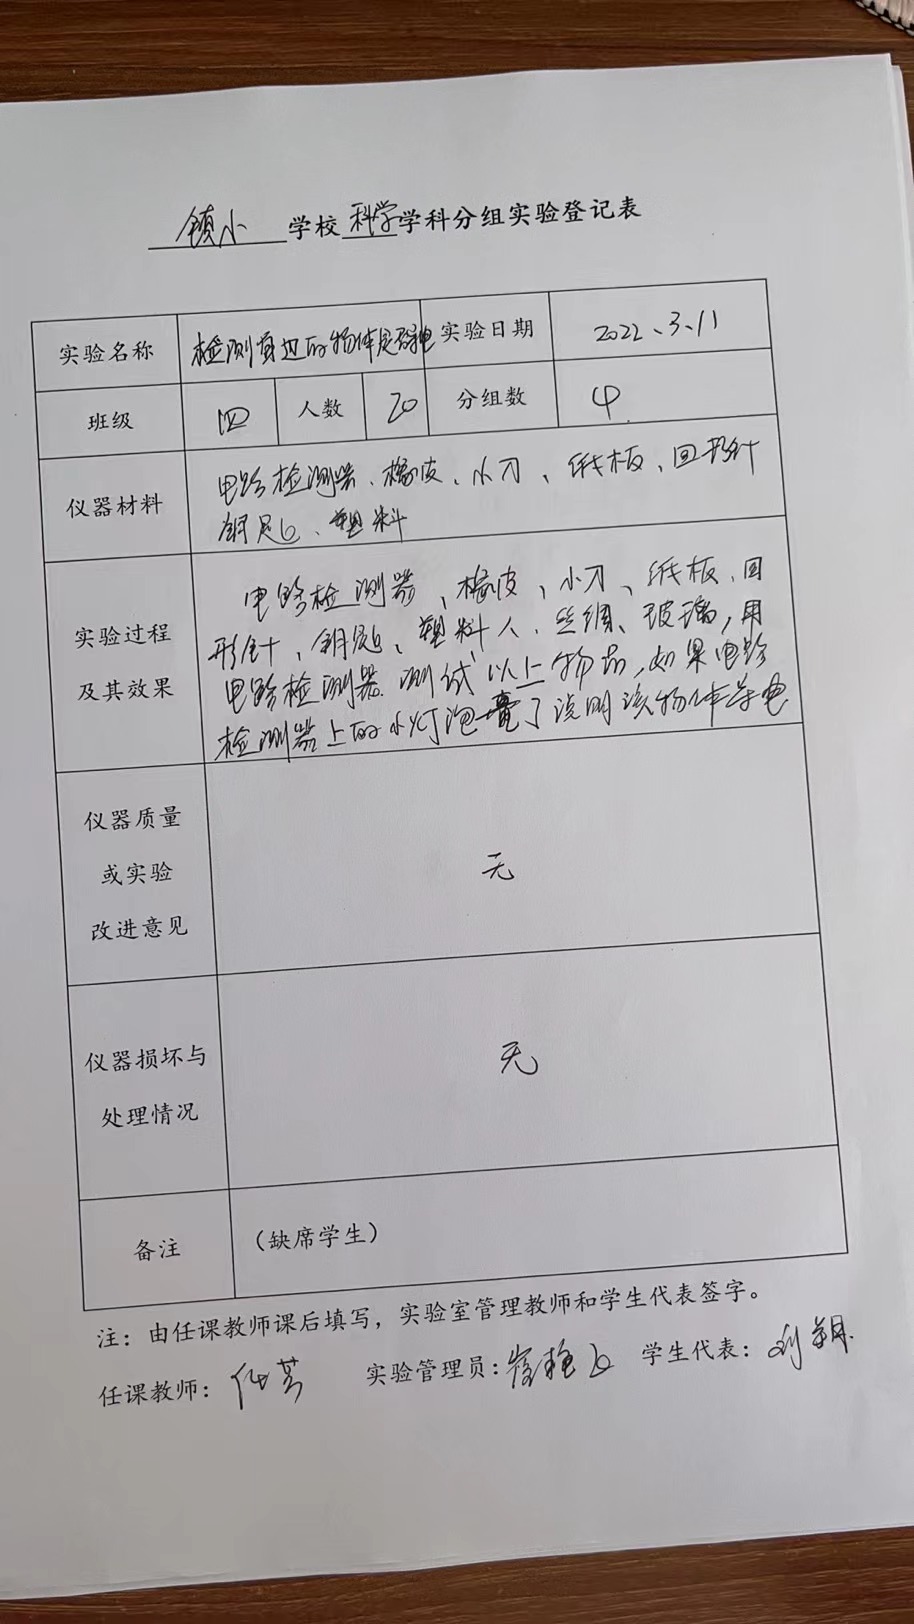 镇小 学校 科学 学科分组实验登记表
实验名称 检测身边的物体是否导电 实验日期 2022、3、11
班级 四 人数 20 分组数 4
仪器材料 电路检测器、橡皮、小刀、纸板、回形针
钥匙、塑料
电路检测器、橡皮、小刀、纸板、回
实验过程 形针、钥匙、塑料人、丝绸、玻璃,用
及其效果 电路检测器测试以上物品,如果电路
检测器上的小灯泡亮了说明该物体导电
仪器质量
或实验 无
改进意见
仪器损坏与 无
处理情况
备注 (缺席学生)
注:由任课教师课后填写,实验室管理教师和学生代表签字。
任课教师: 实验管理员: 学生代表: